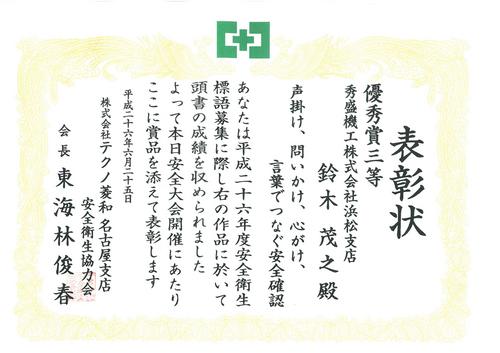 表彰状
優秀賞三等
秀盛機工株式会社浜松支店
鈴木茂之殿
声掛け、問いかけ、心がけ、
言葉でつなぐ安全確認
あなたは平成二十六年度安全衛生
標語募集に際し右の作品に於いて
頭書の成績を収められました
よって本日安全大会開催にあたり
ここに賞品を添えて表彰します
平成二十六年六月二十五日
株式会社テクノ菱和 名古屋支店
安全衛生協力会
会長 東海林俊春